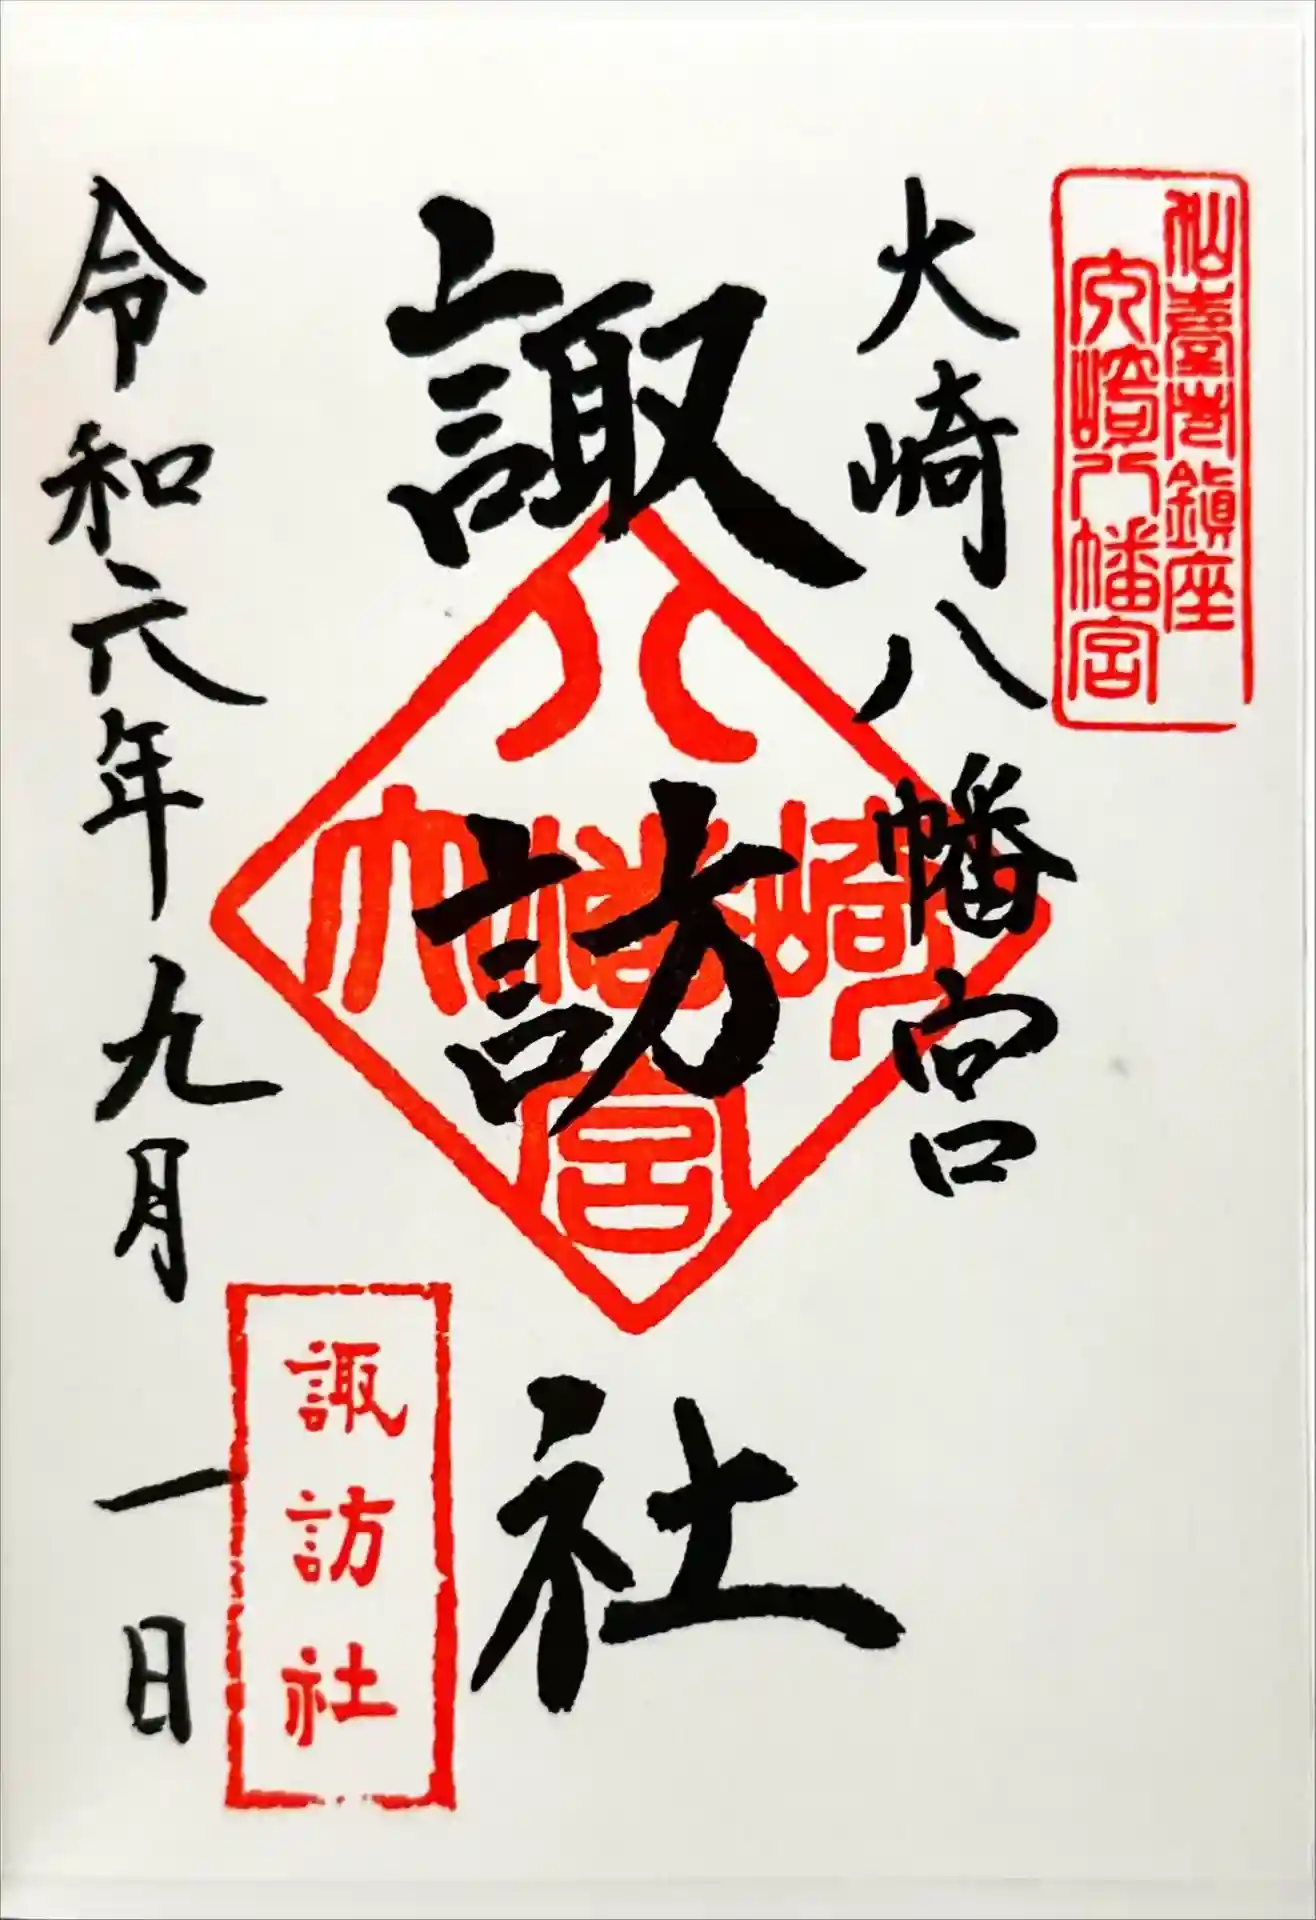 仙臺市鎮座
大崎八幡宮
大崎八幡宮
諏訪社
大崎八幡宮
令和六年九月一日
諏訪社